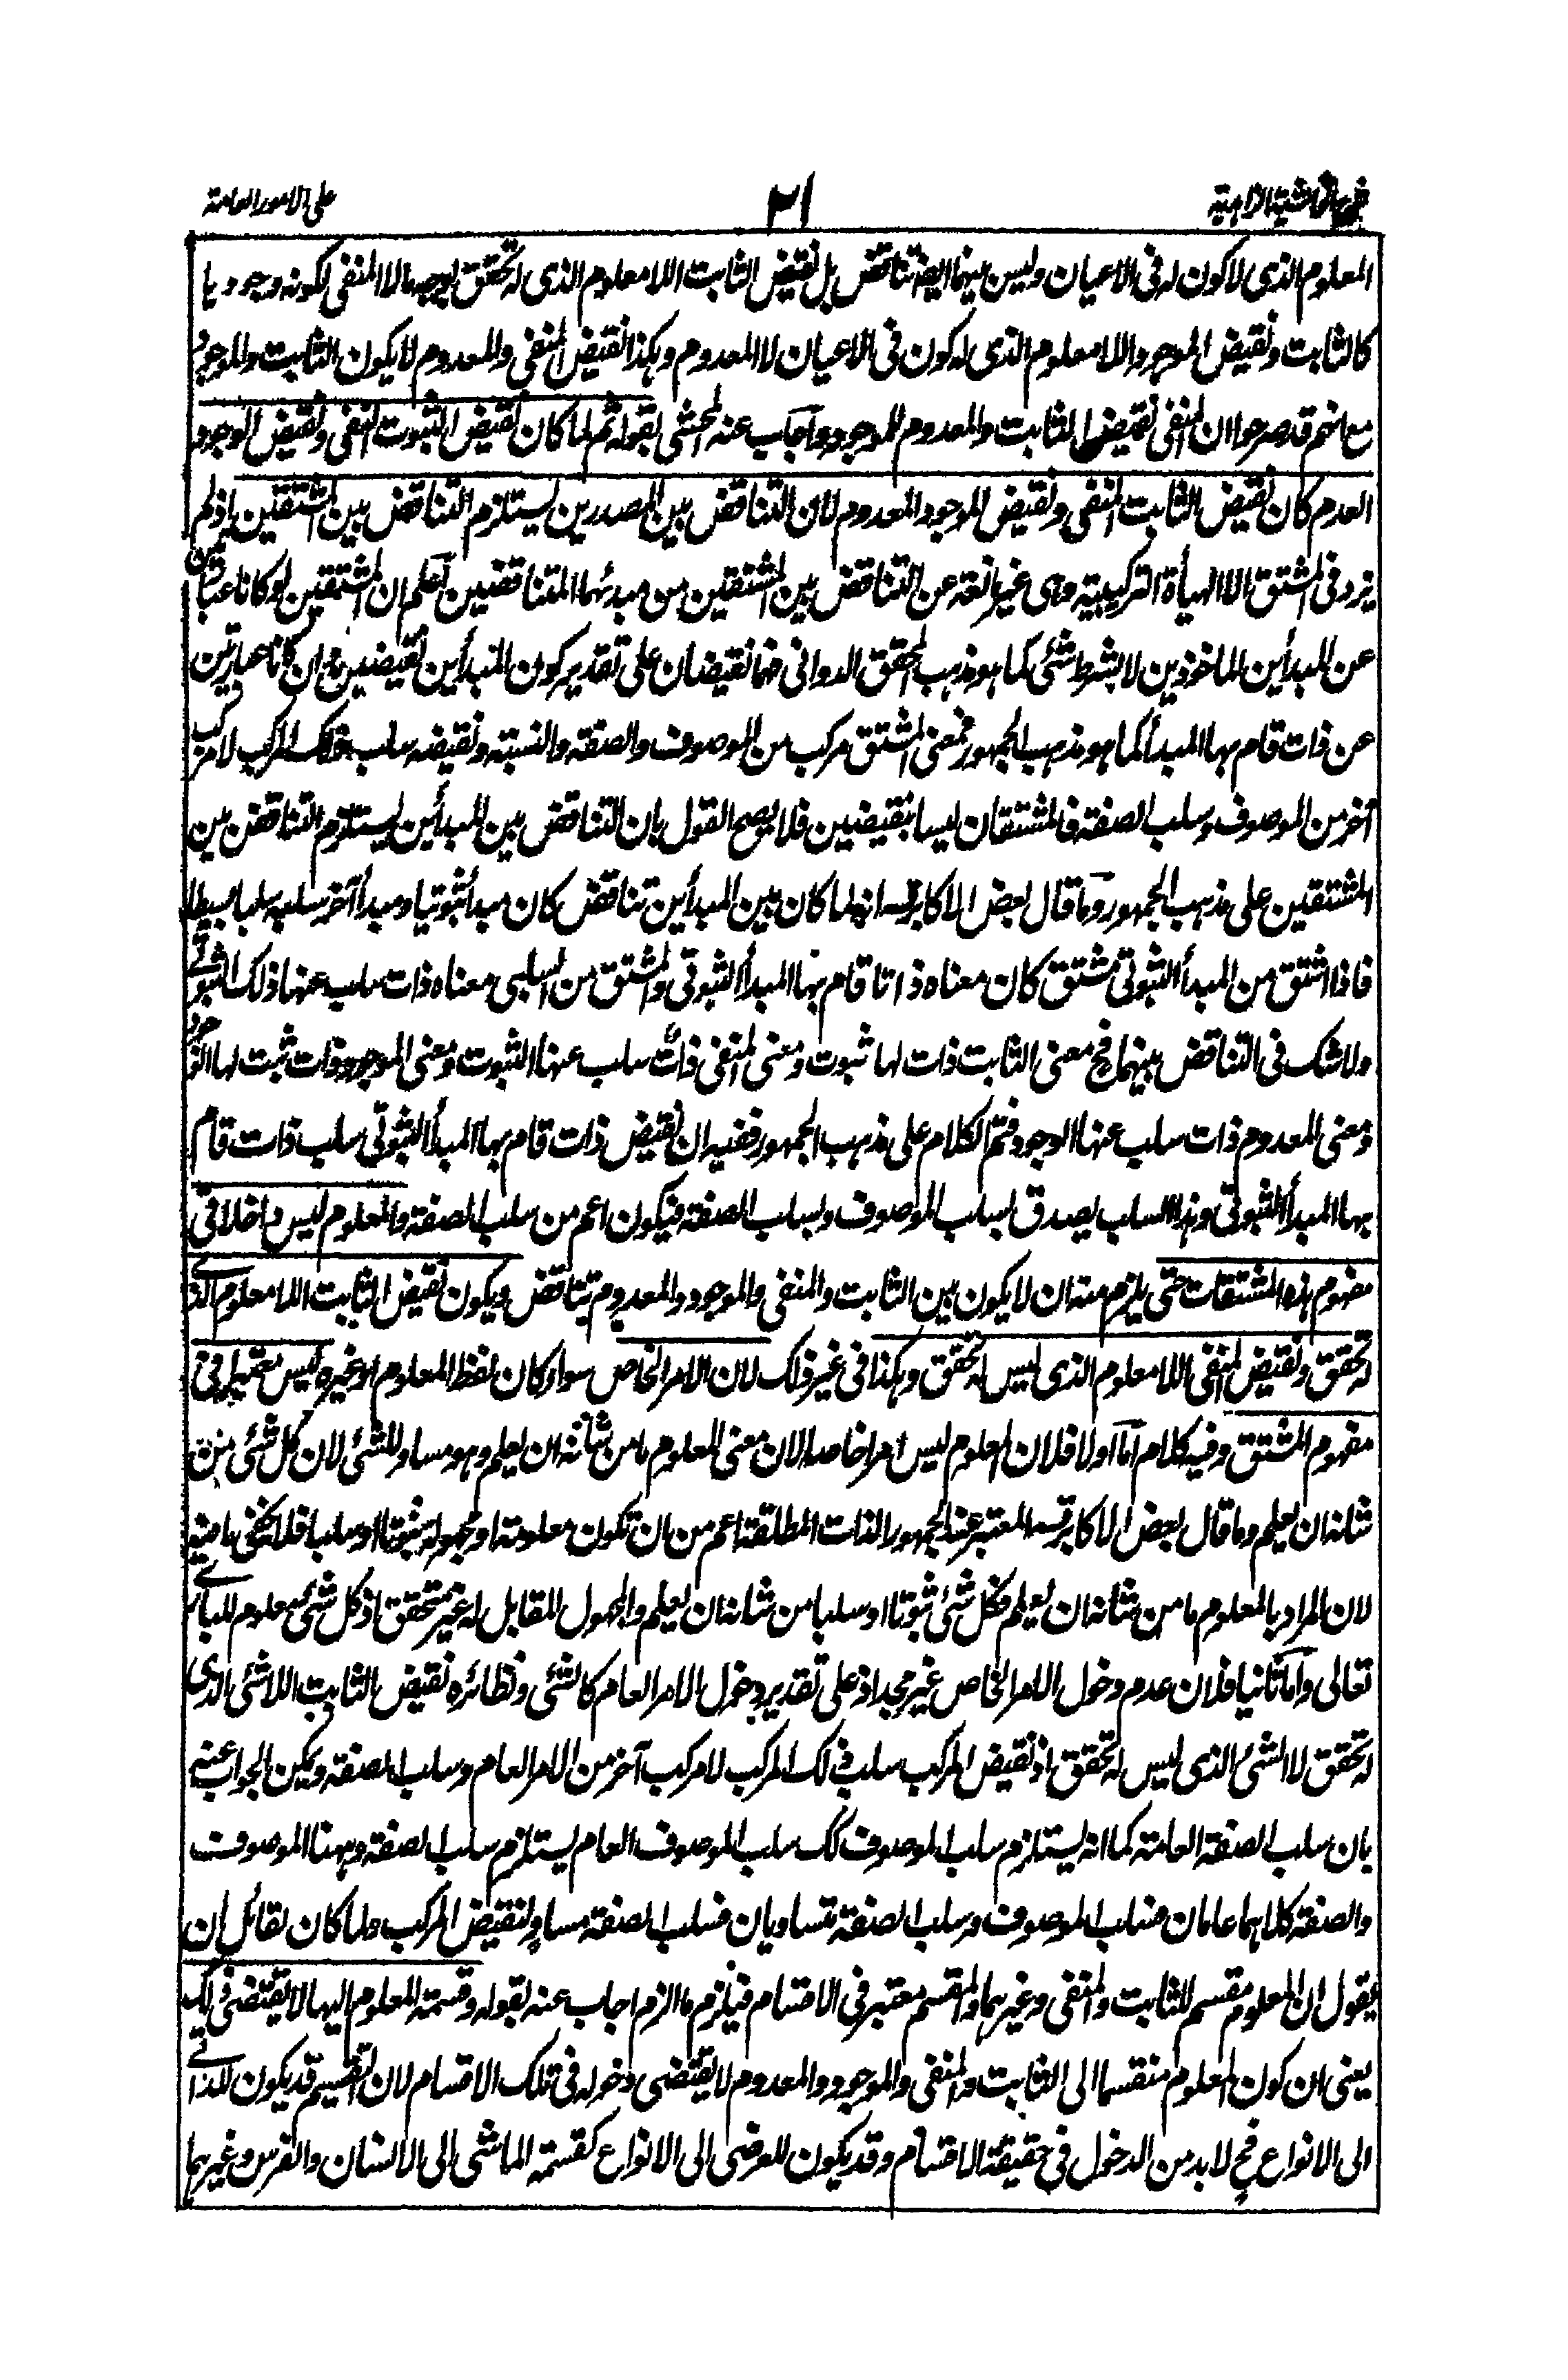 على الامور العامة
٢١
حاشية الزاهدية
المعلوم الذى لا كون له فى الاعيان وليس بينهما ايضا تناقض بل نقيض الثابت اللا معلوم الذى له تحقق بوجه ما لا المنفى لكونه وجوديا
كالثابت ونقيض الموجود اللا معلوم الذى له كون فى الاعيان لا المعدوم وهكذا نقيض المنفى والمعدوم لا يكون الثابت والموجود
مع انهم قد صرحوا ان المنفى نقيض الثابت والمعدوم للموجود واجاب عنه المحشى بقوله ثم لما كان نقيض الثبوت النفى ونقيض الوجود
العدم كان نقيض الثابت المنفى ونقيض الموجود المعدوم لان التناقض بين المصدرين يستلزم التناقض بين المشتقين اذ لم
يزد فى المشتق الا الهيأة التركيبية وهى غير مانعة عن التناقض بين المشتقين من مبدئهما المتناقضين اعلم ان المشتقين لو كانا عبارتين
عن المبدأين الماخوذين لا بشرط شئى كما هو مذهب المحقق الدوانى فهما نقيضان على تقدير كون المبدأين نقيضين وان كانا عبارتين
عن ذات قام بها المبدأ كما هو مذهب الجمهور فمعنى المشتق مركب من الموصوف والصفة والنسبة ونقيضه سلب ذلك المركب لا مركب
آخر من الموصوف وسلب الصفة فالمشتقان ليسا بنقيضين فلا يصح القول بان التناقض بين المبدأين يستلزم التناقض بين
المشتقين على مذهب الجمهور وما قال بعض الاكابر قسه انه لما كان بين المبدأين تناقض كان مبدأ ثبوتيا ومبدأ آخر سلبه سلبا بسيطا
فاذا اشتق من المبدأ الثبوتى مشتق كان معناه ذاتا قام بها المبدأ الثبوتى والمشتق من السلبى معناه ذات سلب عنها ذلك الثبوتى
ولا شك فى التناقض بينهما فح معنى الثابت ذات لها ثبوت ومعنى المنفى ذات سلب عنها الثبوت ومعنى الموجود ذات ثبت لها الوجود
ومعنى المعدوم ذات سلب عنها الوجود فتم الكلام على مذهب الجمهور ففيه ان نقيض ذات قام بها المبدأ الثبوتى سلب ذات قام
بها المبدأ الثبوتى وهذا السلب يصدق بسلب الموصوف وبسلب الصفة فيكون اعم من سلب الصفة والمعلوم ليس داخلا فى
مفهوم هذه المشتقات حتى يلزم منه ان لا يكون بين الثابت والمنفى والموجود والمعدوم تناقض ويكون نقيض الثابت اللا معلوم الذى
له تحقق ونقيض المنفى اللا معلوم الذى ليس له تحقق وهكذا فى غير ذلك لان الامر الخاص سواء كان لفظ المعلوم او غيره ليس معتبرا فى
مفهوم المشتق وفيه كلام اما اولا فلان المعلوم ليس امرا خاصا لان معنى المعلوم ما من شانه ان يعلم وهو مساو للشئى لان كل شئى من
شانه ان يعلم وما قال بعض الاكابر قسه المعتبر عند الجمهور الذات المطلقة اعم من ان تكون معلومة او مجهولة ثبوتا او سلبا فلا يخفى ما فيه
لان المراد بالمعلوم ما من شانه ان يعلم فكل شئى ثبوتا او سلبا من شانه ان يعلم والمجهول المقابل له غير متحقق اذ كل شئى معلوم للبارى
تعالى واما ثانيا فلان عدم دخول الامر الخاص غير مجد اذ على تقدير دخول الامر العام كالشئى ونظائره نقيض الثابت اللا شئى الذى
له تحقق لا الشئى الذى ليس له تحقق اذ نقيض المركب سلب ذلك المركب لا مركب آخر من الامر العام وسلب الصفة ويمكن الجواب عنه
بان سلب الصفة العامة كما انه يستلزم سلب الموصوف كك سلب الموصوف العام يستلزم سلب الصفة وههنا الموصوف
والصفة كلاهما عامان فسلب الموصوف وسلب الصفة متساويان فسلب الصفة مساو لنقيض المركب ولما كان لقائل ان
يقول ان المعلوم مقسم للثابت والمنفى وغيرهما والمقسم معتبر فى الاقسام فيلزم ما الزم اجاب عنه بقوله وقسمة المعلوم اليها لا يقتضى ذلك
يعنى ان كون المعلوم منقسما الى الثابت والمنفى والموجود والمعدوم لا يقتضى دخوله فى تلك الاقسام لان التقسيم قد يكون للذاتى
الى الانواع فح لا بد من الدخول فى حقيقة الاقسام وقد يكون للعرضى الى الانواع كقسمة الماشى الى الانسان والفرس وغيرهما